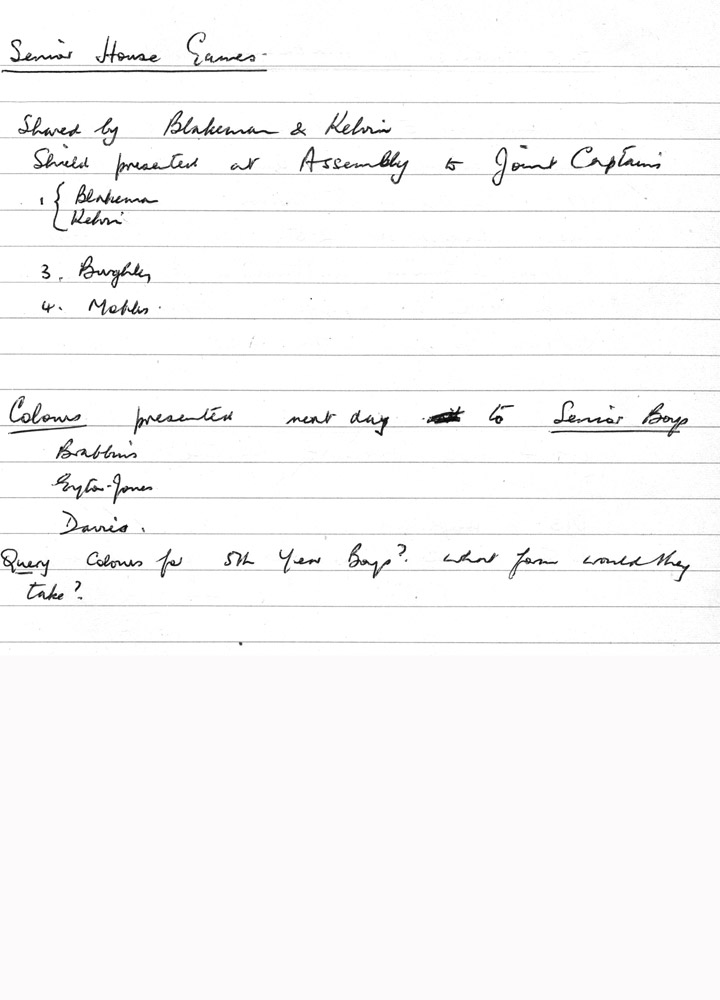 Senior House Games.
Shared by Blakeman & Kelvin
Shield presented at Assembly to Joint Captains
1 { Blakeman
Kelvin
3. Burghley
4.
Colours presented next day to Senior Boys
Brabbins
Eyton-Jones
Davies.
Query Colours for 5th Year Boys? what form would they
take?